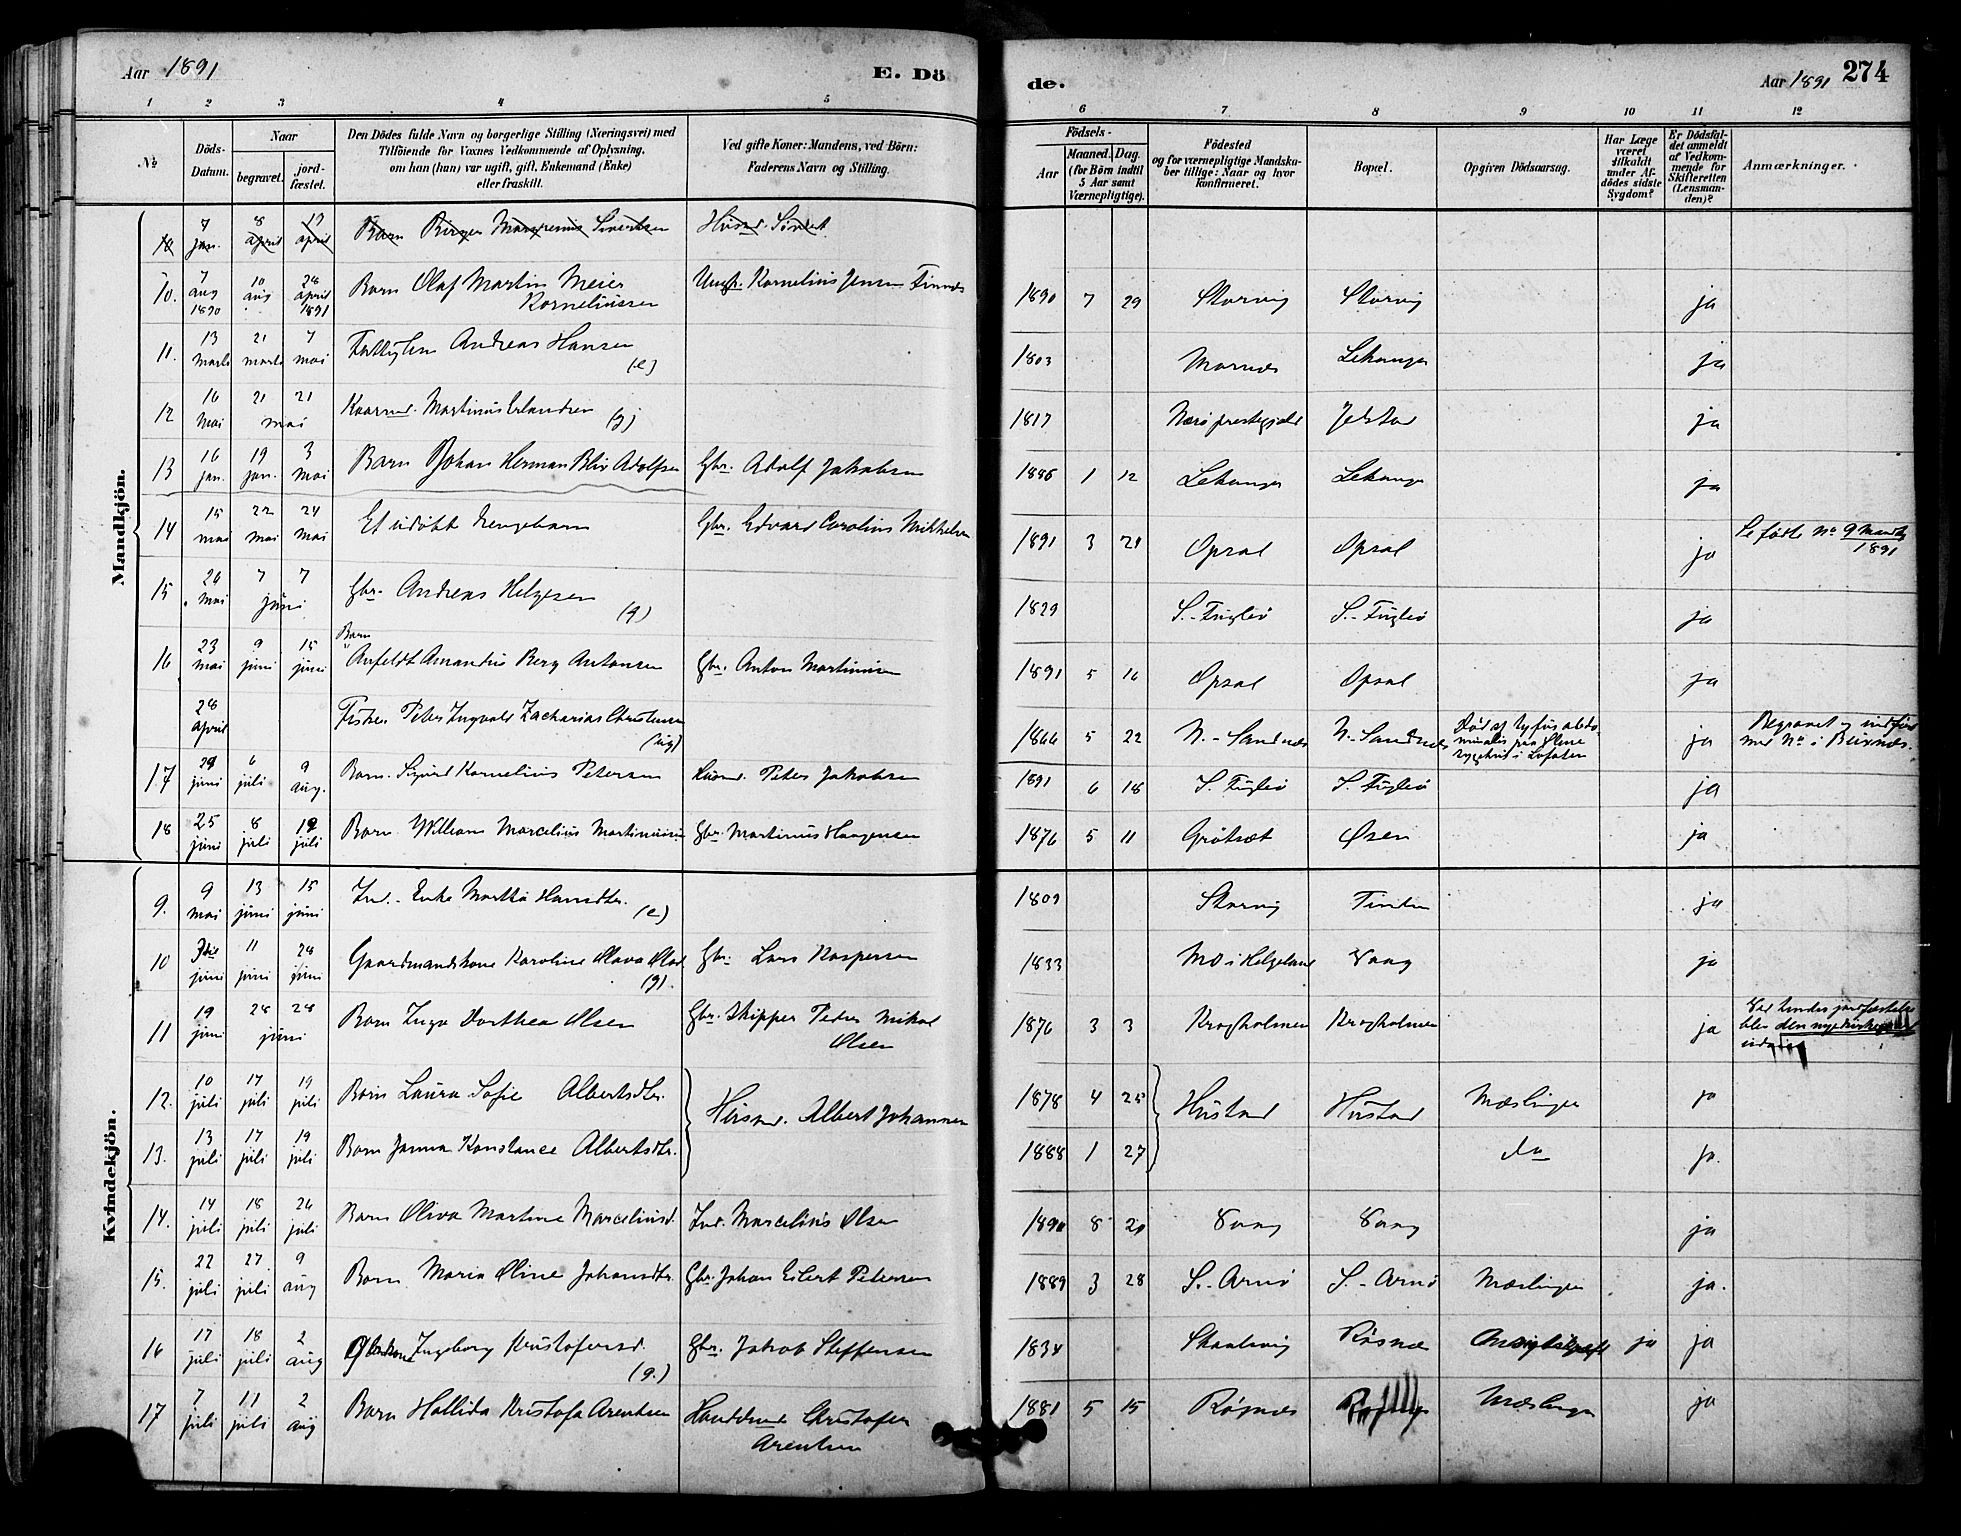 Aar 1891
E. Dö
de.
Aar 1891 274
1 2 3 4 5 6 7 8 9 10 11 12
No
Döds-Datum.
Naar
begravet.
jordfæstet.
Den Dödes fulde Navn og borgerlige Stilling (Næringsvei) med
Tilföiende for Voxnes Vedkommende af Oplysning,
om han (hun) var ugift, gift, Enkemand (Enke)
eller fraskilt.
Ved gifte Koner: Mandens, ved Börn:
Faderens Navn og Stilling.
Födsels-
Aar
Maaned. Dag.
(for Börn indtil
5 Aar samt
Værnepligtige).
Födested
og for værnepligtige Mandska-
ber tillige: Naar og hvor
konfirmeret.
Bopæl.
Opgiven Dödsaarsag.
Har Læge
været
tilkaldt
under Af-
dödes sidste
Sygdom?
Er Dödsfal-
det anmeldt
af Vedkom-
mende for
Skifteretten
(Lensman-
den)?
Anmærkninger.
Mandkjön.
10 7 jan. 8 april 12 april Barn Birger Sivertsen
10. 7 aug 1890 10 aug 28 april 1891 Barn Olaf Martin Meier Korneliussen Kornelius Jensen 1890 7 29 Storvig Storvig ja
11. 13 marts 21 marts 7 mai Andreas Hansen (e) 1803 Marnæs Lekanger ja
12 16 mai 21 21 mai Kaarmd. Martinus Erlandsen (g) 1817 Nærö prestegjeld Jelstad ja
13 16 jan. 19 jan. 3 mai Barn Johan Herman Adolfsen Gbr. Adolf Jakobsen 1886 1 12 Lekanger Lekanger ja
14 15 mai 22 mai 24 mai Et udöbt Gbr. Edvard Carolius Mikkelsen 1891 3 21 Opsal Opsal ja Se födte No 9 Mandkj. 1891
15 26 mai 7 7 juni Gbr. Andreas Helgesen (g) 1829 S.-Fuglö S.-Fuglö ja
16 23 mai 9 juni 15 juni Barn Anfeldt Amandus Berg Antonsen Gbr. Anton Martinusen 1891 5 16 Opsal Opsal ja
28 april Fisker Peter Ingvald Zacharias Christensen (ug) 1866 5 22 N.-Sandnæs N.-Sandnæs Död af tyfus abdominalis paa sygehus i Lofoten ja Begravet og indført med No i Buxnæs.
17 29 juni 6 juli 9 aug. Barn Sigurd Kornelius Petersen Husmd. Peter Jakobsen 1891 6 18 S. Fuglö S. Fuglö ja
18 25 juni 8 juli 12 juli Barn William Marcelius Martinusen Gbr. Martinus Haagensen 1876 5 11 Grötsæt Osen ja
Kvindekjön.
9. 9 mai 13 juni 15 juni Ind.- Enke Martha Hansdtr. (e) 1809 Storvig ja
10 juni 11 juni 28 juni Gaardmandskone Karoline Olava Olsd. (g). Gbr. Lars Kaspersen 1833 Mo i Helgeland Vaag ja
11 19 juni 28 28 juni Barn Inga Dorthea Olsen Gbr. Skipper Peder Mikal Olsen 1876 3 3 Kragholmen Kragholmen ja Ved hendes jordfæstelse blev den nye kirkegaard indviet
12. 10 juli 17 juli 19 juli Barn Laura Sofie Albertsdtr. Husmd. Albert Johannesen 1878 4 25 Hustad Hustad Mæslinger ja
13. 13 juli 17 juli 19 juli Barn Janna Konstance Albertsdtr. 1888 1 27 do ja.
14. 14 juli 18 juli 26 juli Barn Oliva Martine Marceliusd. Ind. Marcelius Olsen 1890 8 20 Vaag Vaag ja
15. 22 juli 27 juli 9 aug Barn Maria Oline Johansdtr. Gbr. Johan Eilert Petersen 1889 3 28 S.-Arnö S.-Arnö Mæslinger ja.
16 17 juli 18 juli 2 aug Ingeborg Kristofersd. (g.) Gbr. Jakob Steffensen 1834 Skaalsvig Røsnæs Ansigtskræft ja ja
17 7 juli 11 juli 2 aug Barn Hallida Kristofa Arentsen Christofer Arentsen 1881 5 15 Røsnæs Mæslinger ja